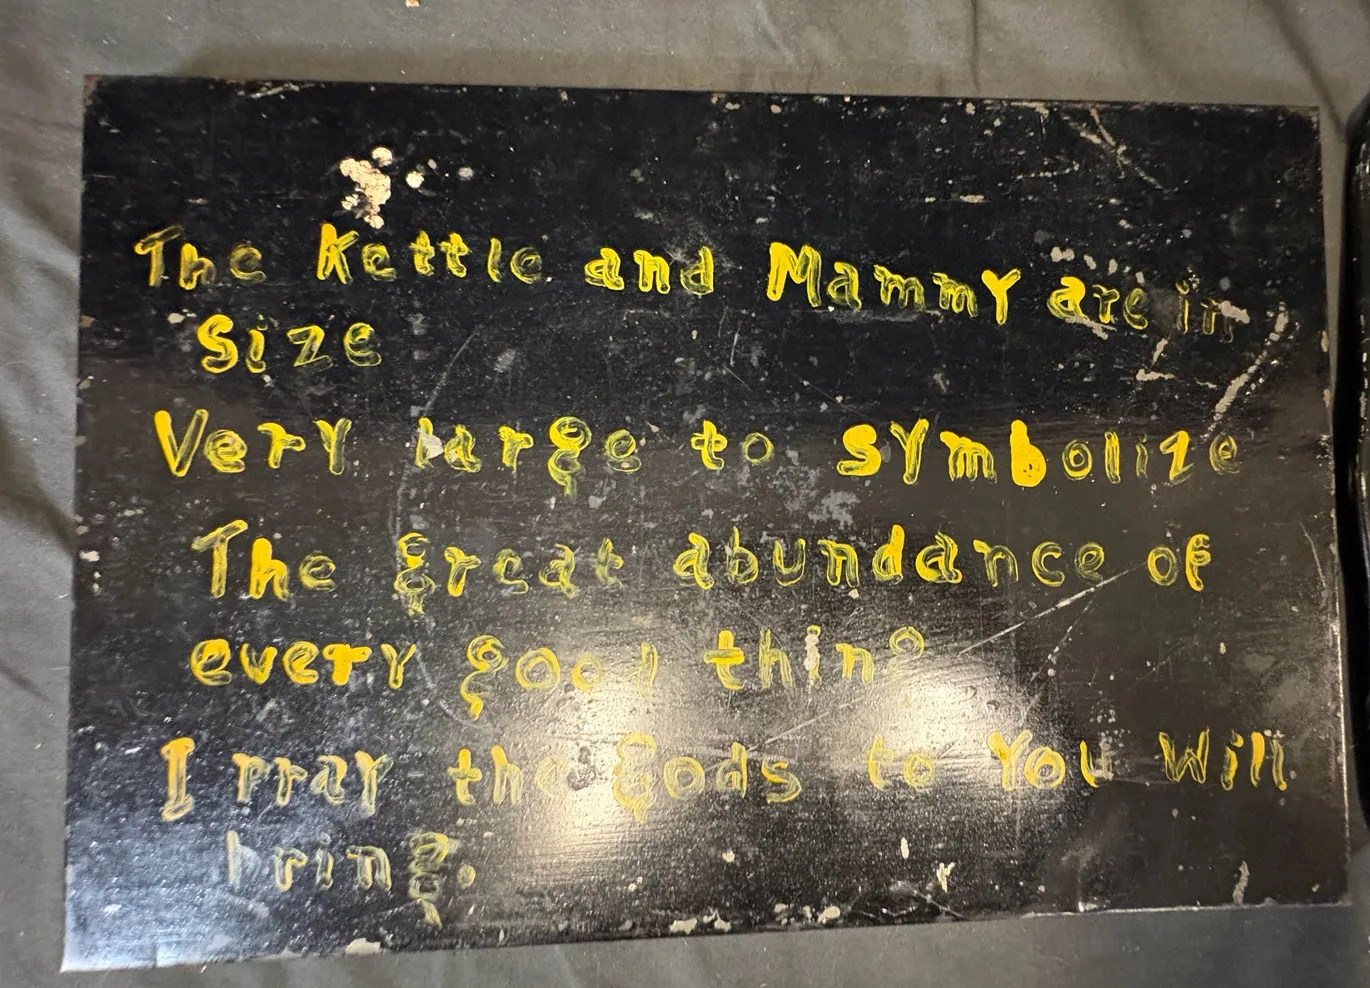 The Kettle and Mammy are in
Size
Very large to symbolize
The great abundance of
every good thing
I pray the gods to You Will
bring.